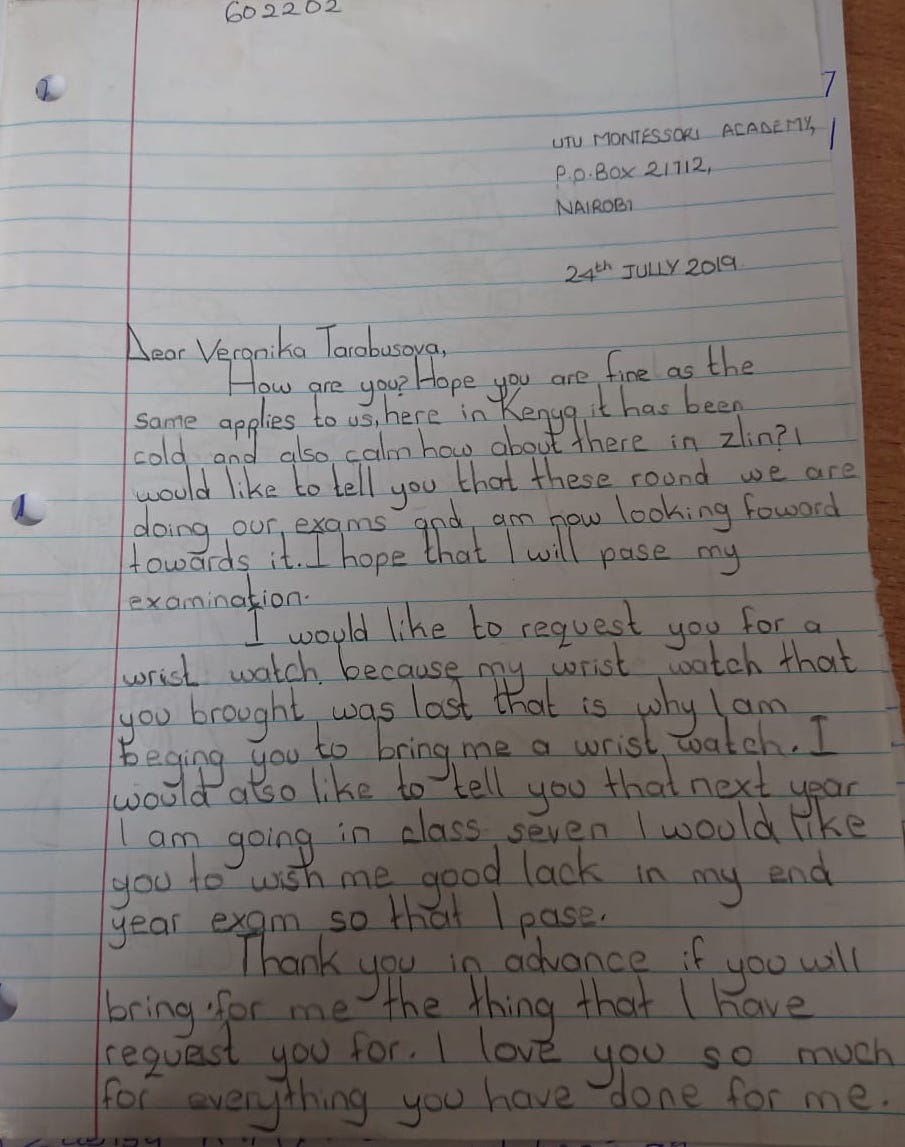 602202
UTU MONTESSORI ACADEMY,
P.O.BOX 21712,
NAIROBI
24th JULLY 2019
Dear Veronika Tarabusova,
How are you? Hope you are fine as the
same applies to us, here in Kenya it has been
cold and also calm how about there in zlin? I
would like to tell you that these round we are
doing our exams and am now looking foword
towards it. I hope that I will pase my
examination.
I would like to request you for a
wrist watch because my wrist watch that
you brought was lost that is why I am
beging you to bring me a wrist watch. I
would also like to tell you that next year
I am going in class seven I would like
you to wish me good lack in my end
year exam so that I pase.
Thank you in advance if you will
bring for me the thing that I have
request you for. I love you so much
for everything you have done for me.